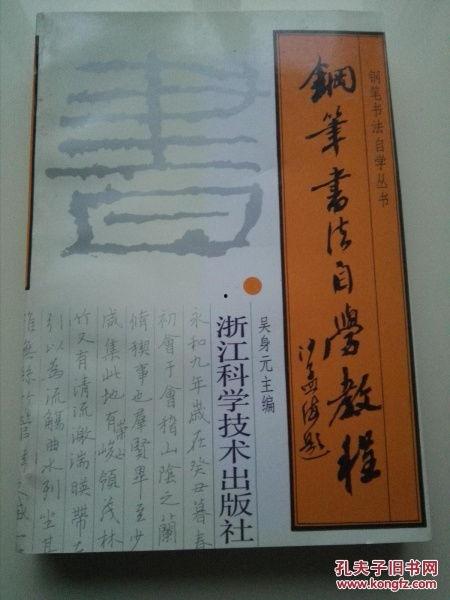 钢笔书法自学丛书
鋼筆書法自學教程
沙孟海題
吴身元主编
浙江科学技术出版社
書
永和九年歲在癸丑暮春
初會于會稽山陰之蘭
脩稧事也羣賢畢至少
咸集此地有崇山峻領茂林
竹又有清流激湍暎帶左
引以為流觴曲水列坐其
雖無絲竹管
孔夫子旧书网
www.kongfz.com